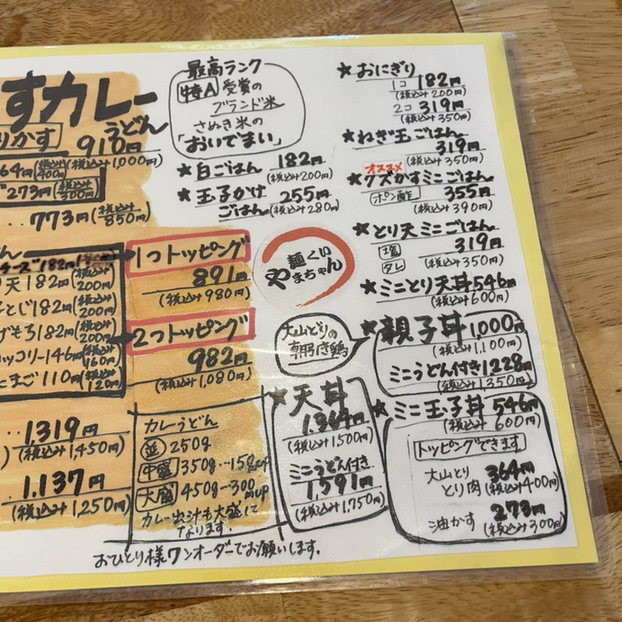 すカレー
うどん
りかす
910円
(税込み1,000円)
364円(税込み400円)
273円(税込み300円)
773円(税込み850円)
チーズ182円
天182円(税込み200円)
とじ182円(税込み200円)
げもち182円(税込み200円)
ッコリー146円(税込み160円)
たまご110円(税込み120円)
1,319円
(税込み1,450円)
1,137円
(税込み1,250円)
1つトッピング
891円
(税込み980円)
2つトッピング
982円
(税込み1,080円)
カレーうどん
並250g
中盛350g
大盛450g
カレー出汁も大盛して
なります.
最高ランク
特A受賞の
ブランド米
さぬき米の
「おいでまい」
★白ごはん 182円
(税込み200円)
★玉子かけ
ごはん 255円
(税込み280円)
麺くい
やまちゃん
大山どりの
朝引き鶏
★天丼
1,364円
(税込み1500円)
ミニうどん付き
1,591円
(税込み1,750円)
★おにぎり
1コ 182円
(税込み200円)
2コ 319円
(税込み350円)
★ねぎ玉ごはん
319円
(税込み350円)
オススメ
★クズかすミニごはん
ポン酢 355円
(税込み390円)
★とり天ミニごはん
塩 319円
タレ (税込み350円)
★ミニとり天丼546円
(税込み600円)
★親子丼1,000円
(税込み1,100円)
ミニうどん付き1228円
(税込み1,350円)
★ミニ玉子丼546円
(税込み600円)
トッピングできます
大山とり 364円
とり肉(税込み400円)
油かす 273円
(税込み300円)
おひとり様ワンオーダーでお願いします.